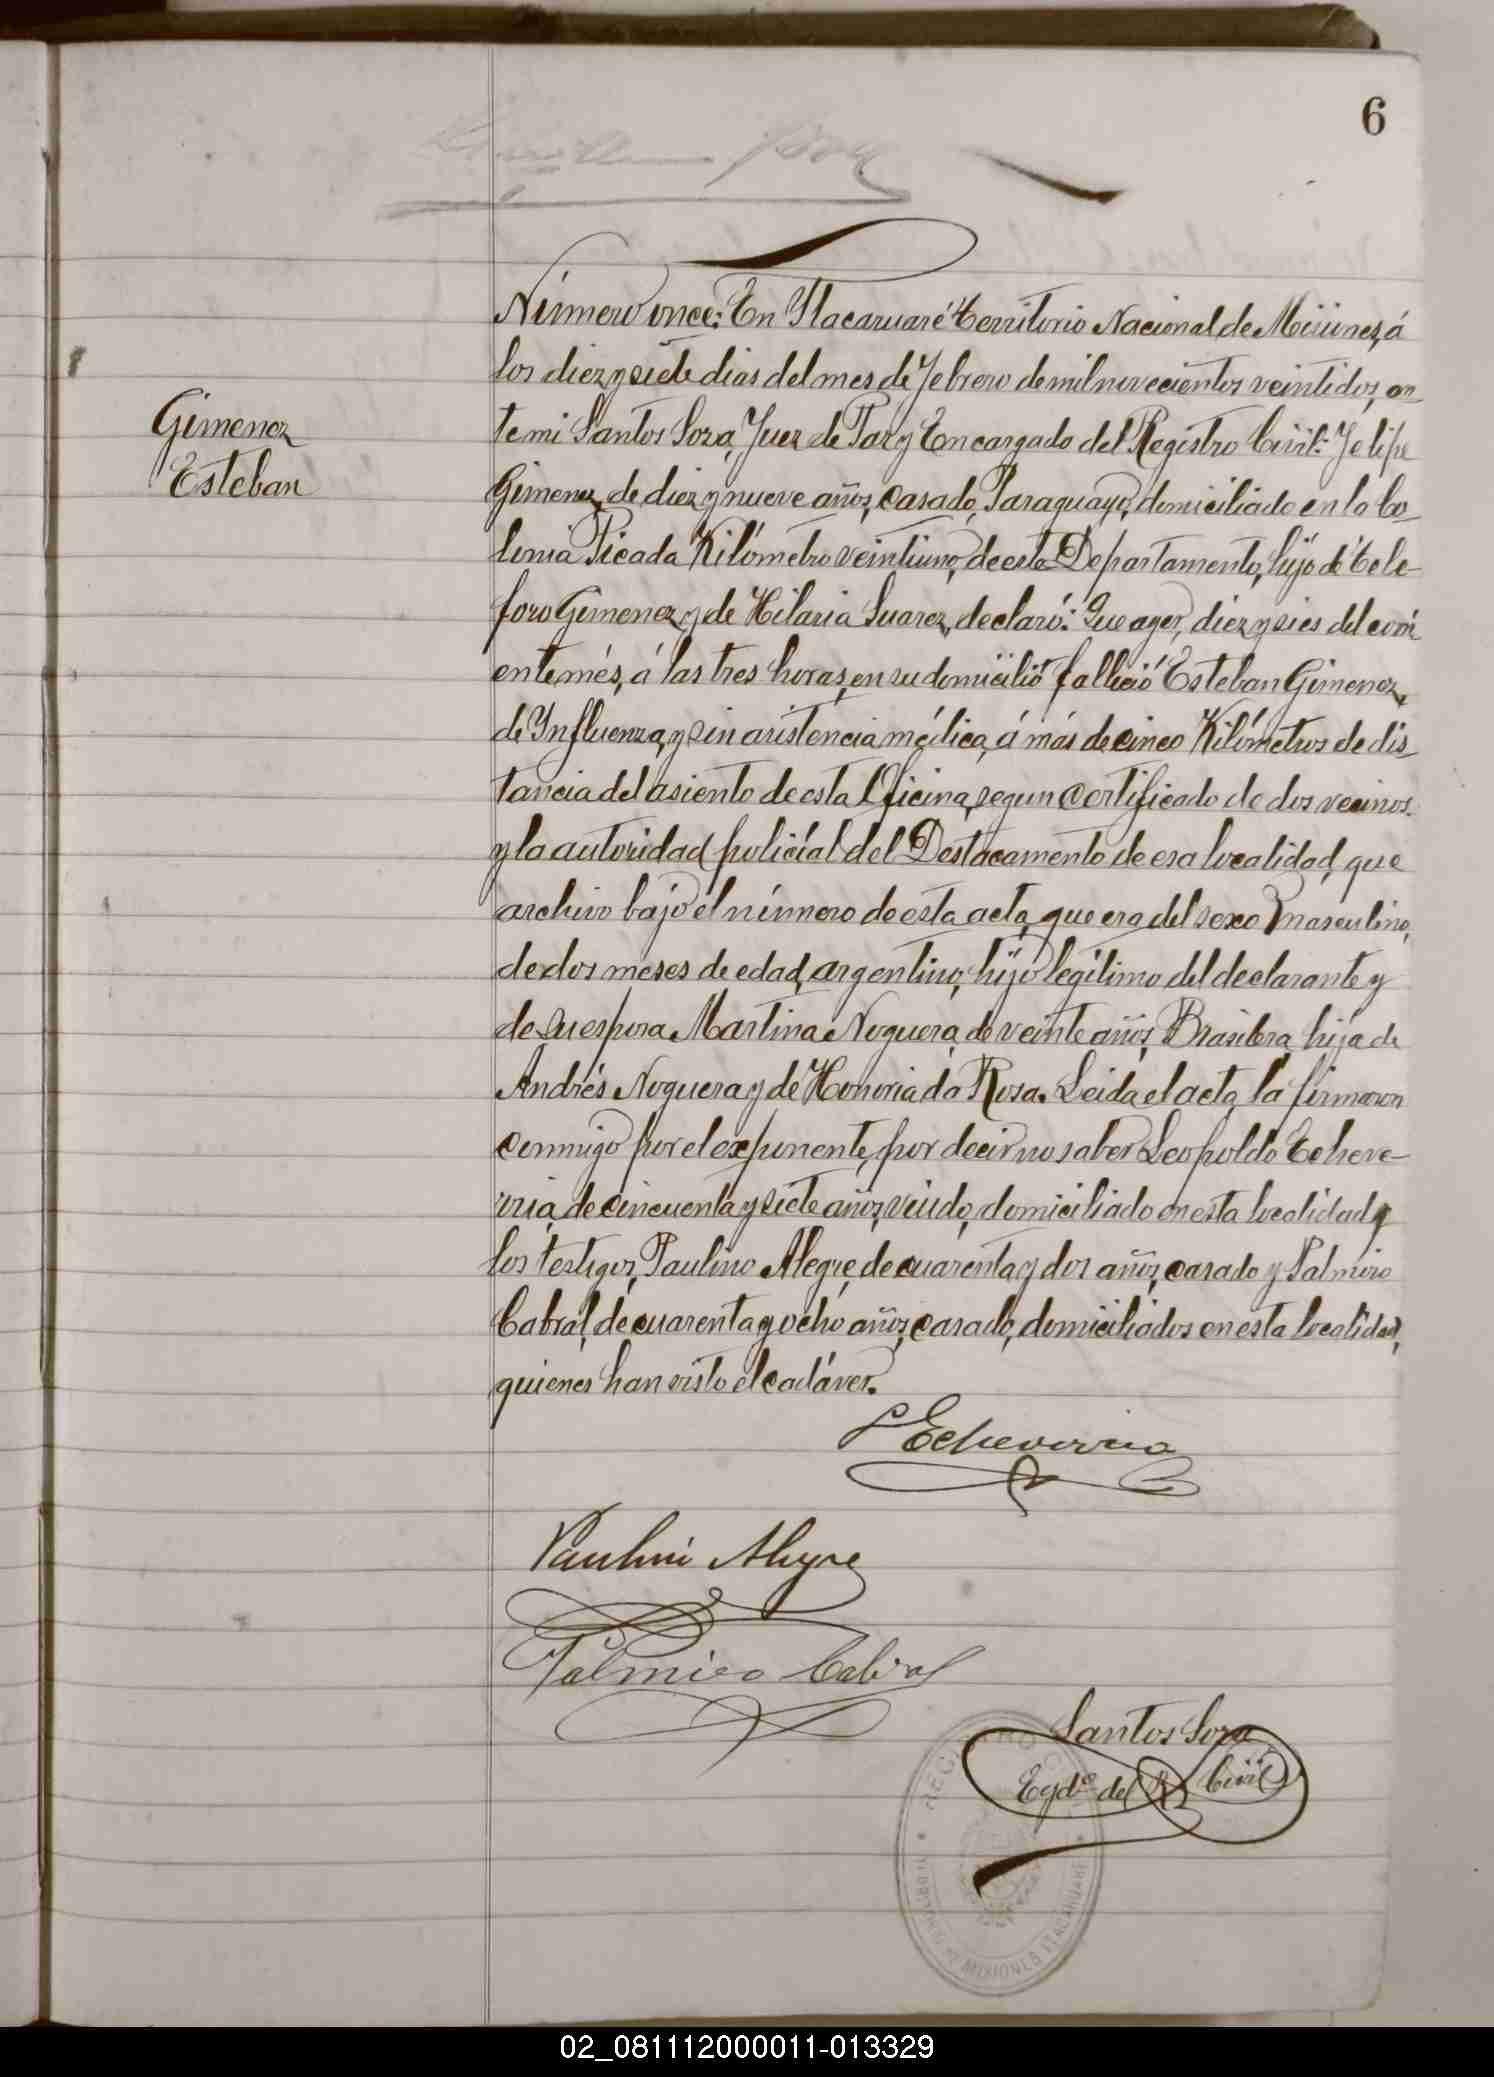 6
Número once: En Itacaruaré Territorio Nacional de Misiones, á
los diez y siete dias del mes de Febrero de mil novecientos veintidos, an-
Gimenez
Esteban
te mi Santos Soza, Juez de Paz y Encargado del Registro Civil: Felipe
Gimenez, de diez y nueve años, casado, Paraguayo, domiciliado en la Co-
lonia Picada Kilómetro veintiuno, de este Departamento, hijo de Tele-
foro Gimenez y de Hilaria Suarez, declaró: Que ayer, diez y seis del corri-
ente més, á las tres horas, en su domicilio falleció Esteban Gimenez,
de Ynfluenza, y sin asistencia médica, á más de cinco Kilómetros de dis-
tancia del asiento de esta Oficina, segun certificado de dos vecinos
y la autoridad policial del Destacamento de esa localidad, que
archivo bajo el número de esta acta, que era del sexo masculino,
de dos meses de edad, argentino, hijo legítimo del declarante y
de su esposa Martina Noguera, de veinte años, Brasilera, hija de
Andrés Noguera y de Honoria da Rosa. Leida el acta, la firmaron
conmigo por el exponente, por decir no saber Leopoldo Echeve-
rria, de cincuenta y siete años, viudo, domiciliado en esta localidad y
los testigos, Paulino Alegre, de cuarenta y dos años, casado y Palmiro
Cabral, de cuarenta y ocho años, casado, domiciliados en esta localidad,
quienes han visto el cadáver.
L Echeverria
Paulino Alegre
Palmiro Cabral
Santos Soza
Egdo del R Civil
REGISTRO CIVIL
MISIONES ITACARUARE
02_081112000011-013329